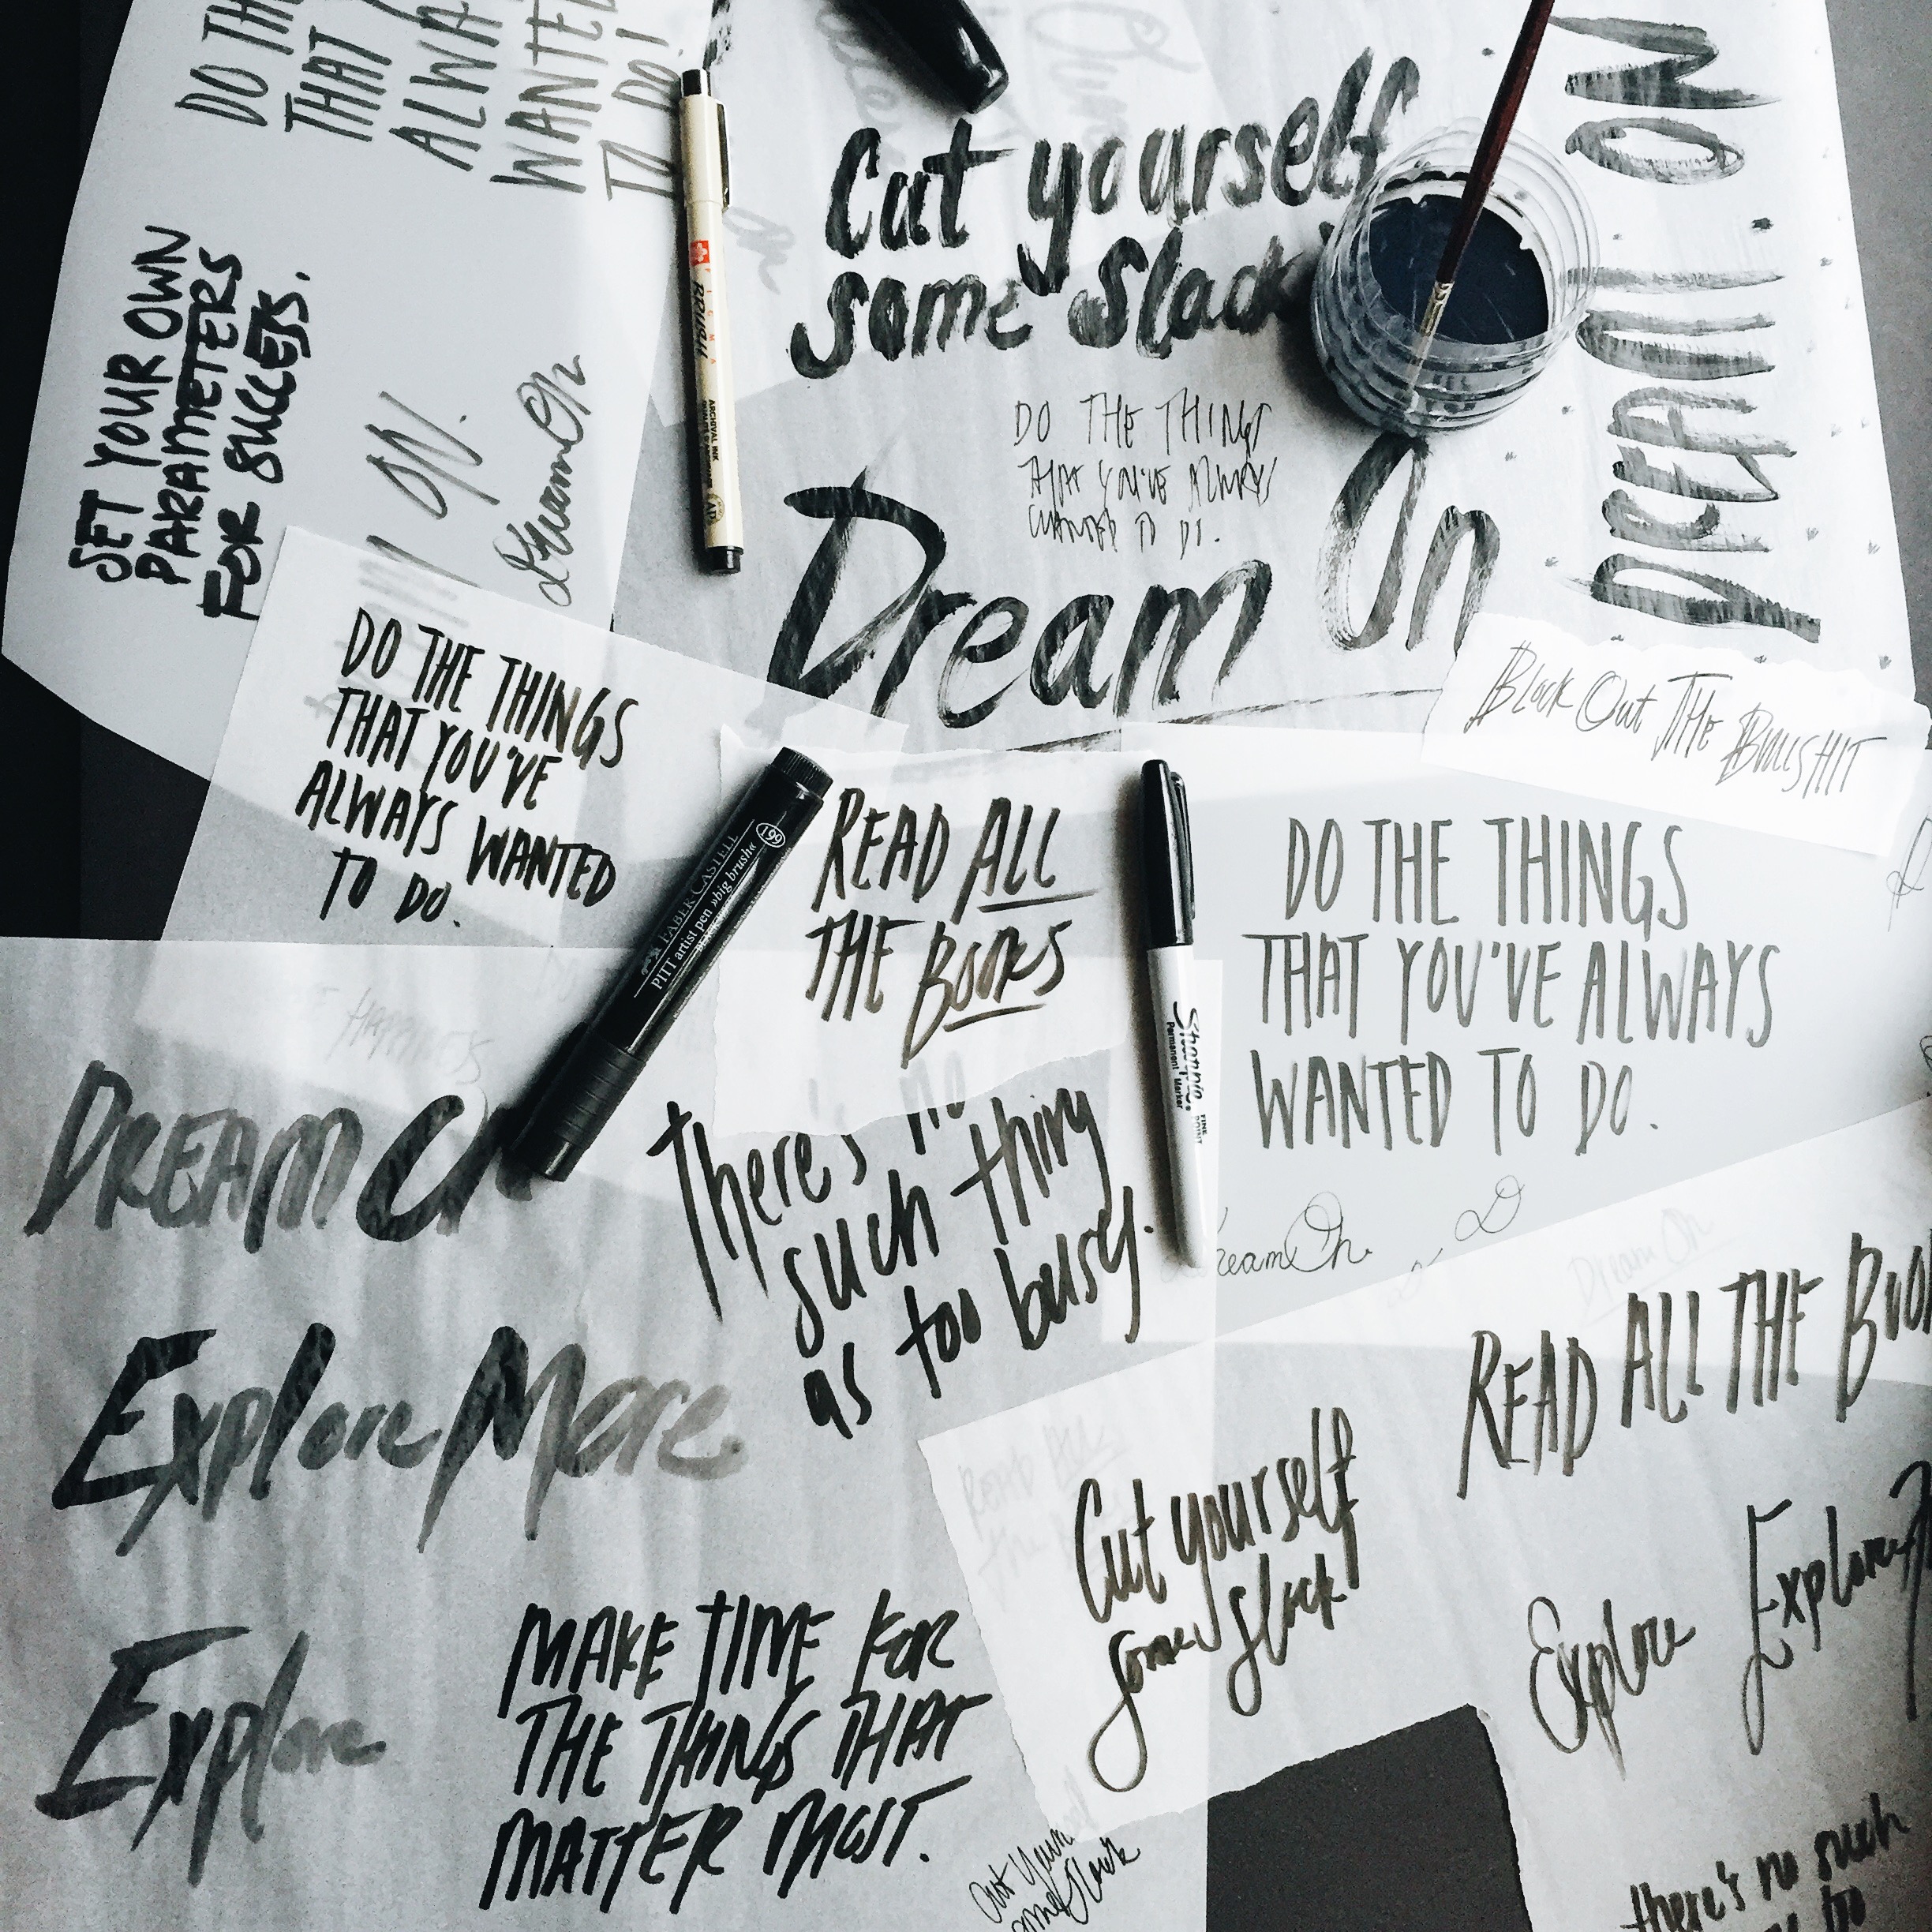 DO THE
THAT
ALWA
WANTE
TO DO!
Cut yourself
some slack
DREAM ON
SET YOUR OWN
PARAMETERS
FOR SUCCESS.
ON.
Dream On
BRUSH
ARCHIVAL INK
DO THE THINGS
THAT YOU'VE ALWAYS
WANTED TO DO.
Dream On
Block Out THE BULLSHIT
DO THE THINGS
THAT YOU'VE
ALWAYS WANTED
TO DO.
199
FABER-CASTELL
PITT artist pen »big brush«
READ ALL
THE BOOKS
Sharpie
Permanent Marker
FINE POINT
DO THE THINGS
THAT YOU'VE ALWAYS
WANTED TO DO.
Happiness
DREAM O
There's no
such thing
as too busy.
ream On.
D
Dream On
READ ALL THE BOO
Explore More
READ ALL
the
Cut yourself
some slack
Explore
Explore
Explore
MAKE TIME FOR
THE THINGS THAT
MATTER MOST.
Cut your
some slack
there's no such
too